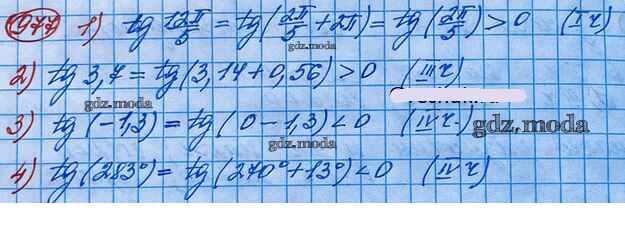 977 1) tg 12π/5 = tg(2π/5 + 2π) = tg(2π/5) > 0 (I ч)
gdz.moda
2) tg 3,7 = tg(3,14 + 0,56) > 0 (III ч)
gdz.moda
3) tg(-1,3) = tg(0 - 1,3) < 0 (IV ч.)
gdz.moda
gdz.moda
4) tg(283°) = tg(270° + 13°) < 0 (IV ч)